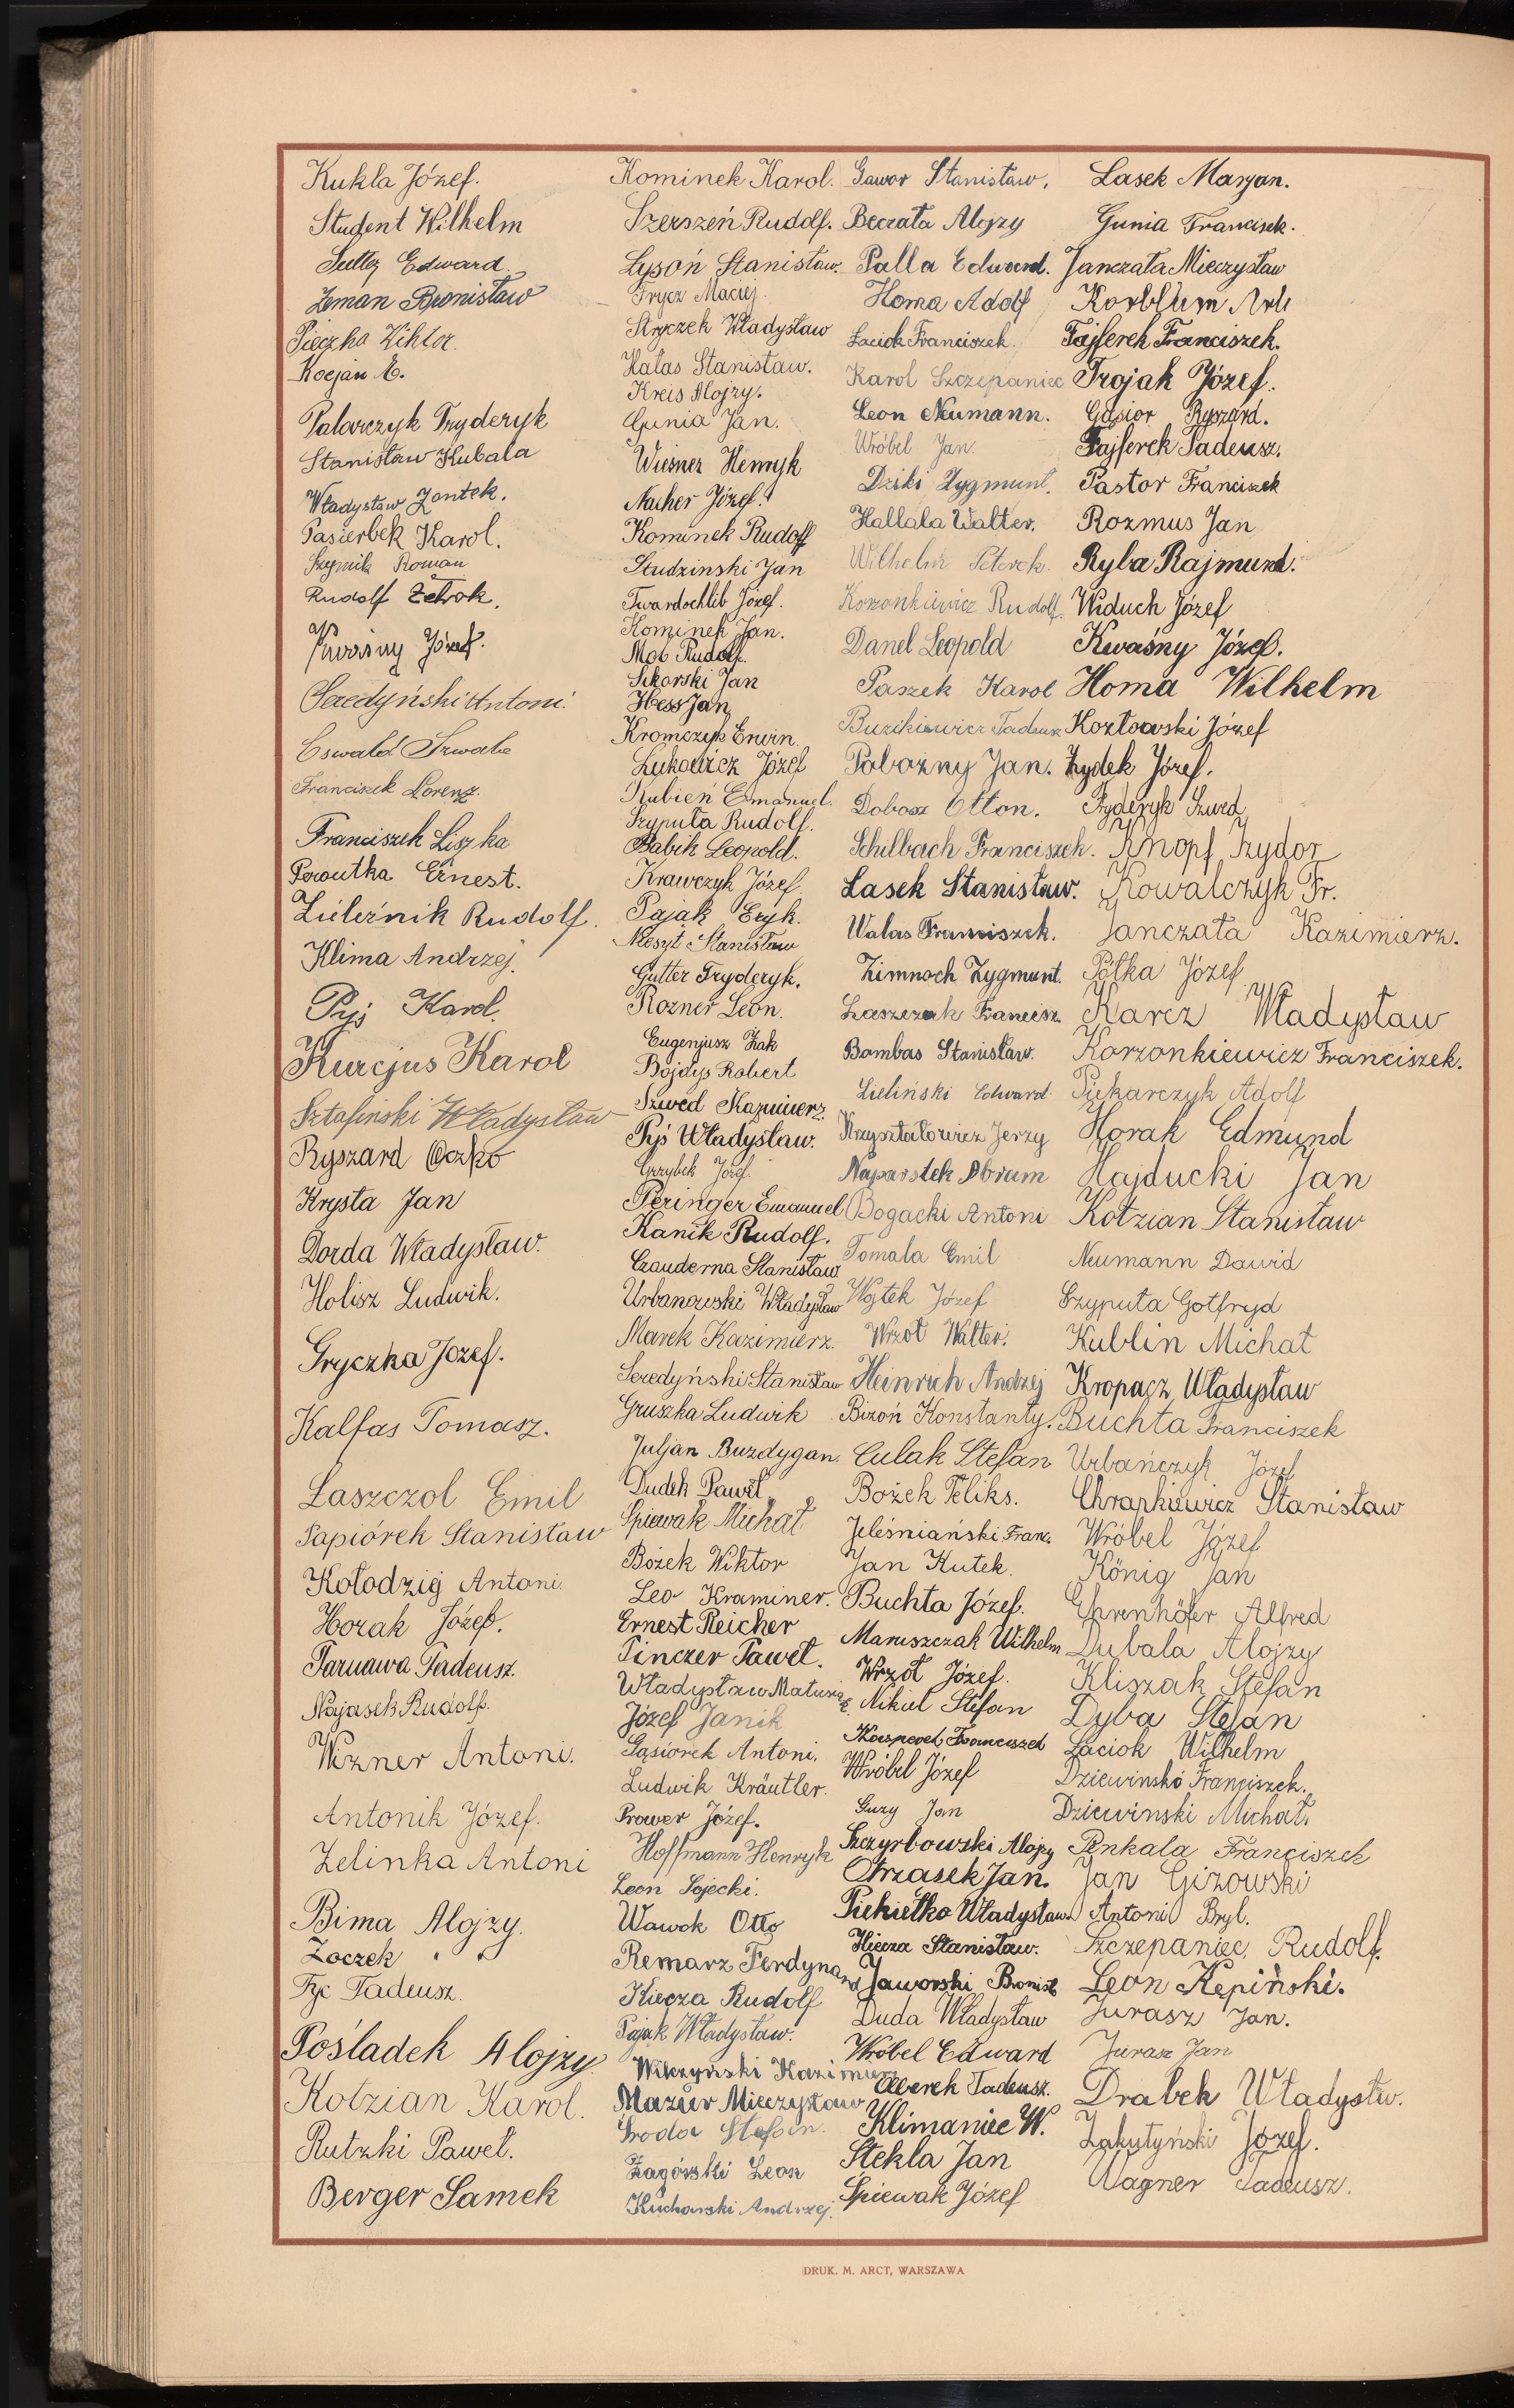 Kukla Józef.
Student Wilhelm
Edward
Zeman Bronisław
Pieczka Wiktor.
Kocjan E.
Palarczyk Fryderyk
Stanisław Kubala
Władysław Zontek.
Pasierbek Karol.
Roman
Rudolf
Kwaśny Józef.
Seredyński Antoni.
Oswald Szwabe
Franciszek Lorenz.
Franciszek Liszka
Powutka Ernest.
Zieleźnik Rudolf.
Klima Andrzej.
Pyś Karol.
Kurcjus Karol
Sztafiński Władysław
Ryszard Oczko
Krysta Jan
Dorda Władysław.
Holisz Ludwik.
Gryczka Józef.
Kalfas Tomasz.
Laszczol Emil
Papiórek Stanisław
Kołodziej Antoni.
Horak Józef.
Tarnawa Tadeusz.
Najasek Rudolf.
Wizner Antoni.
Antonik Józef.
Zelinka Antoni
Bima Alojzy.
Zoczek " "
Fyc Tadeusz.
Pośladek Alojzy
Kotzian Karol.
Rutzki Paweł.
Berger Samek
Kominek Karol.
Szerszeń Rudolf.
Łysoń Stanisław.
Frycz Maciej.
Stryczek Władysław
Hałas Stanisław.
Kreis Alojzy.
Gunia Jan.
Wiesner Henryk
Nacher Józef.
Kominek Rudolf
Studzinski Jan
Twardochlib Józef.
Kominek Jan.
Rudolf.
Sikorski Jan
Hess Jan
Kromczyk Erwin.
Łukowicz Józef
Kubień Emanuel.
Szypuła Rudolf.
Babik Leopold.
Krawczyk Józef.
Pająk Eryk.
Stanisław
Gutter Fryderyk.
Rozner Leon.
Eugenjusz Żak
Bojdys Robert
Szwed Kazimierz.
Pyś Władysław.
Grzybek Józef.
Peringer Emanuel
Kanik Rudolf.
Czauderna Stanisław
Urbanowski Władysław
Marek Kazimierz.
Seredyński Stanisław
Gruszka Ludwik
Juljan Buzdygan.
Dudek Paweł
Śpiewak Michał
Bożek Wiktor
Leo Kraminer.
Ernest Reicher
Pinczer Paweł.
Władysław Matusiak
Józef Janik
Gąsiorek Antoni.
Ludwik Kräutler.
Prower Józef.
Hoffmann Henryk
Leon Sojecki.
Wawok Otto
Remarz Ferdynand
Kiecza Rudolf
Pająk Władysław.
Wilczyński Kazimierz
Mazur Mieczysław
Środa Stefan.
Zagórski Leon
Kucharski Andrzej.
Gawor Stanisław.
Beczała Alojzy
Palla Edward.
Homa Adolf
Łaciok Franciszek.
Karol Szczepaniec
Leon Neumann.
Wróbel Jan.
Dziki Zygmunt.
Hallala Walter.
Wilhelm Peterek.
Korzonkiewicz Rudolf.
Danel Leopold
Paszek Karol
Tadeusz
Pobożny Jan.
Dobosz Otton.
Schilbach Franciszek.
Lasek Stanisław.
Walas Franciszek.
Zimnoch Zygmunt.
Laszczak Francisz.
Bombas Stanisław.
Zieliński Edward.
Krzyształowicz Jerzy
Naparstek Abram
Bogacki Antoni
Tomala Emil
Wojtek Józef
Wrzoł Walter.
Heinrich Andrzej
Bizoń Konstanty.
Culak Stefan
Bożek Feliks.
Jeleśniański Franc.
Jan Kutek.
Buchta Józef.
Maruszczak Wilhelm
Wrzoł Józef.
Nikiel Stefan
Kacperek Franciszek
Wróbel Józef
Guzy Jan
Szczyrbowski Alojzy
Otrząsek Jan.
Piekiełko Władysław
Kiecza Stanisław.
Jaworski Bronisł.
Duda Władysław
Wróbel Edward
Oberek Tadeusz.
Klimaniec W.
Stekla Jan
Śpiewak Józef
Lasek Marjan.
Gunia Francisek.
Janczała Mieczysław
Kornblum
Fajferek Franciszek.
Trojak Józef.
Gąsior Ryszard.
Fajferek Tadeusz.
Pastor Franciszek
Rozmus Jan
Ryba Rajmund.
Widuch Józef
Kwaśny Józef.
Homa Wilhelm
Kozłowski Józef
Żydek Józef.
Fryderyk Szwed
Knopf Izydor
Kowalczyk Fr.
Janczała Kazimierz.
Półka Józef
Karcz Władysław
Korzonkiewicz Franciszek.
Piekarczyk Adolf
Horak Edmund
Hajducki Jan
Kotzian Stanisław
Neumann Dawid
Szypuła Gotfryd
Kublin Michał
Kropacz Władysław
Buchta Franciszek
Urbańczyk Józef
Chrapkiewicz Stanisław
Wróbel Józef
König Jan
Ehrenhöfer Alfred
Dubala Alojzy
Kliszak Stefan
Dyba Stefan
Łaciok Wilhelm
Dziewinski Franciszek.
Dziewinski Michał.
Penkala Franciszek
Jan Gizowski
Antoni Bryl.
Szczepaniec Rudolf.
Leon Kępiński.
Jurasz Jan.
Jurasz Jan
Drabek Władysław.
Zakutyński Józef.
Wagner Tadeusz.
DRUK. M. ARCT, WARSZAWA